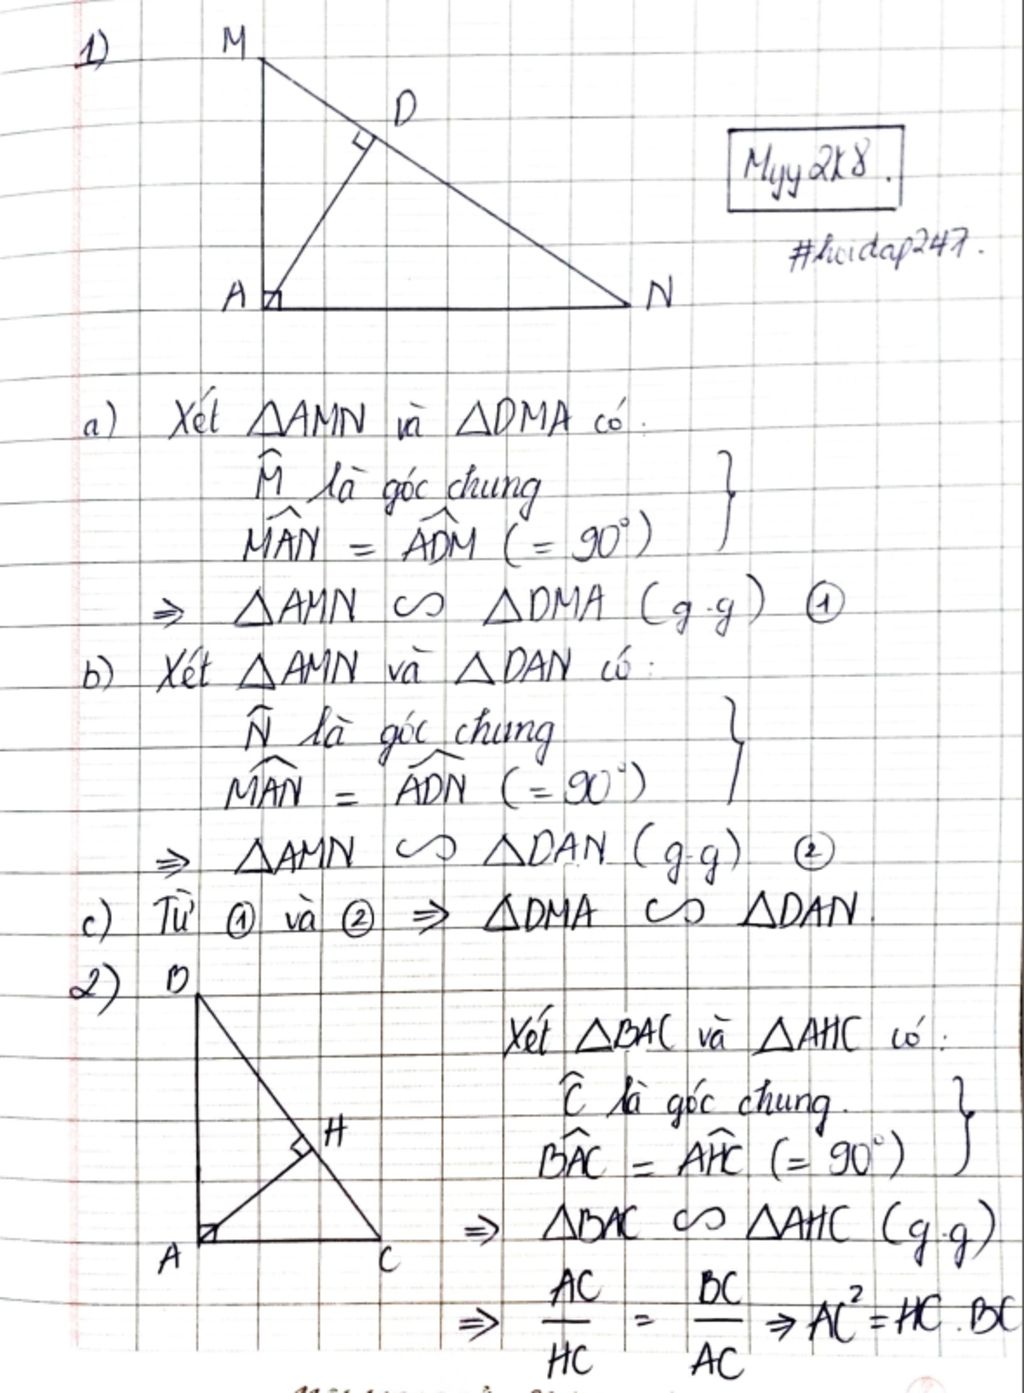 1)
M
D
A
N
Myy2k8.
#hoidap247.
a) Xét △AMN và △DMA có:
M̂ là góc chung
MÂN = AD̂M (= 90°) }
⇒ △AMN ∽ △DMA (g.g) ①
b) Xét △AMN và △DAN có:
N̂ là góc chung
MÂN = AD̂N (= 90°) }
⇒ △AMN ∽ △DAN (g.g) ②
c) Từ ① và ② ⇒ △DMA ∽ △DAN.
2)
B
H
A
C
Xét △BAC và △AHC có:
Ĉ là góc chung.
BÂC = AĤC (= 90°) }
⇒ △BAC ∽ △AHC (g.g)
⇒ AC/HC = BC/AC ⇒ AC² = HC.BC